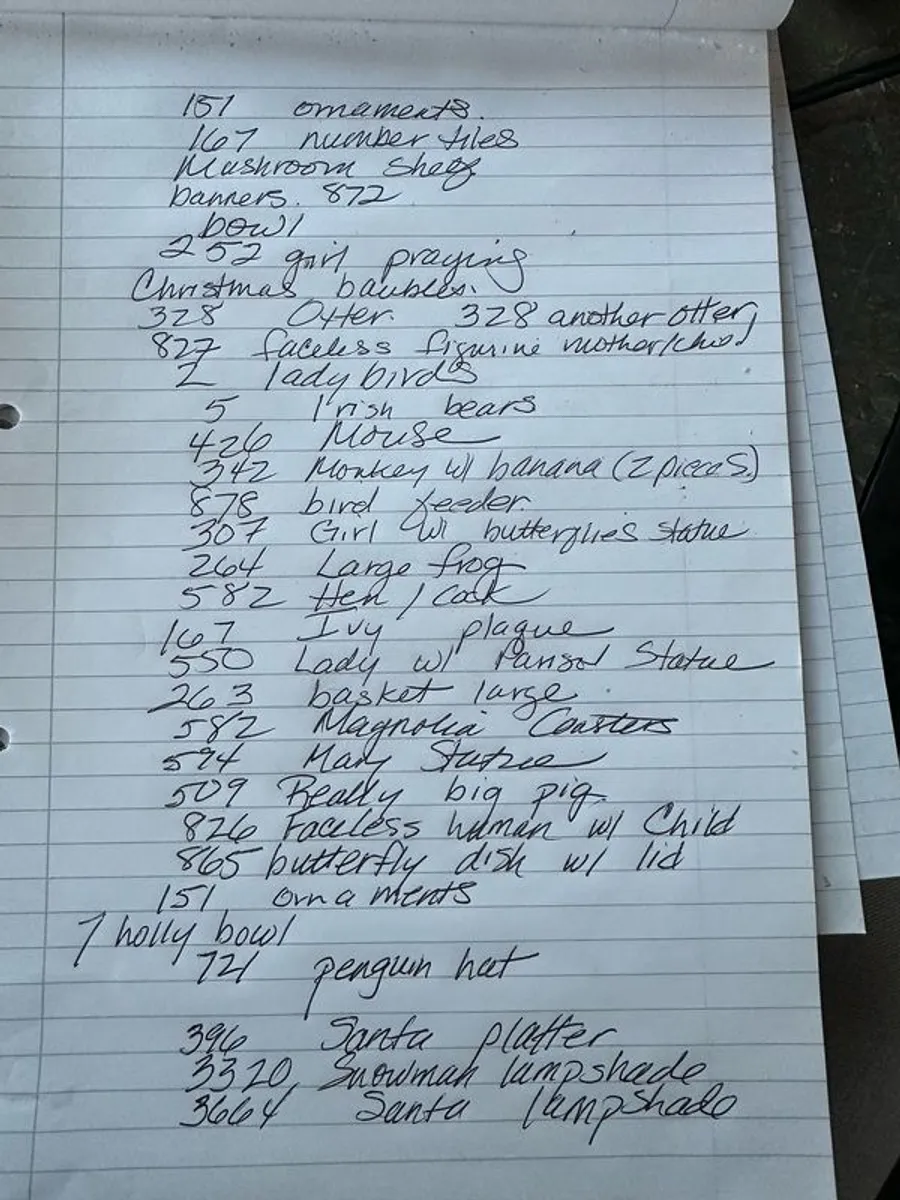 151 ornaments.
167 number tiles
Mushroom
banners. 872
bowl
252 girl praying
Christmas baubles.
328 Otter. 328 another otter
827 faceless figurine mother/child
2 ladybirds
5 Irish bears
426 Mouse
342 Monkey w/ banana (2 pieces.)
878 bird feeder.
307 Girl w/ butterflies statue
264 Large frog
582 Hen / Cock
167 Ivy plaque
550 Lady w/ Parasol Statue
263 basket large.
582 Magnolia Coasters
594 Mary Statue
509 Really big pig.
826 Faceless human w/ Child
865 butterfly dish w/ lid
151 ornaments
7 holly bowl
721 penguin hat
396 Santa platter
3320, Snowman lampshade
3664 Santa lampshade